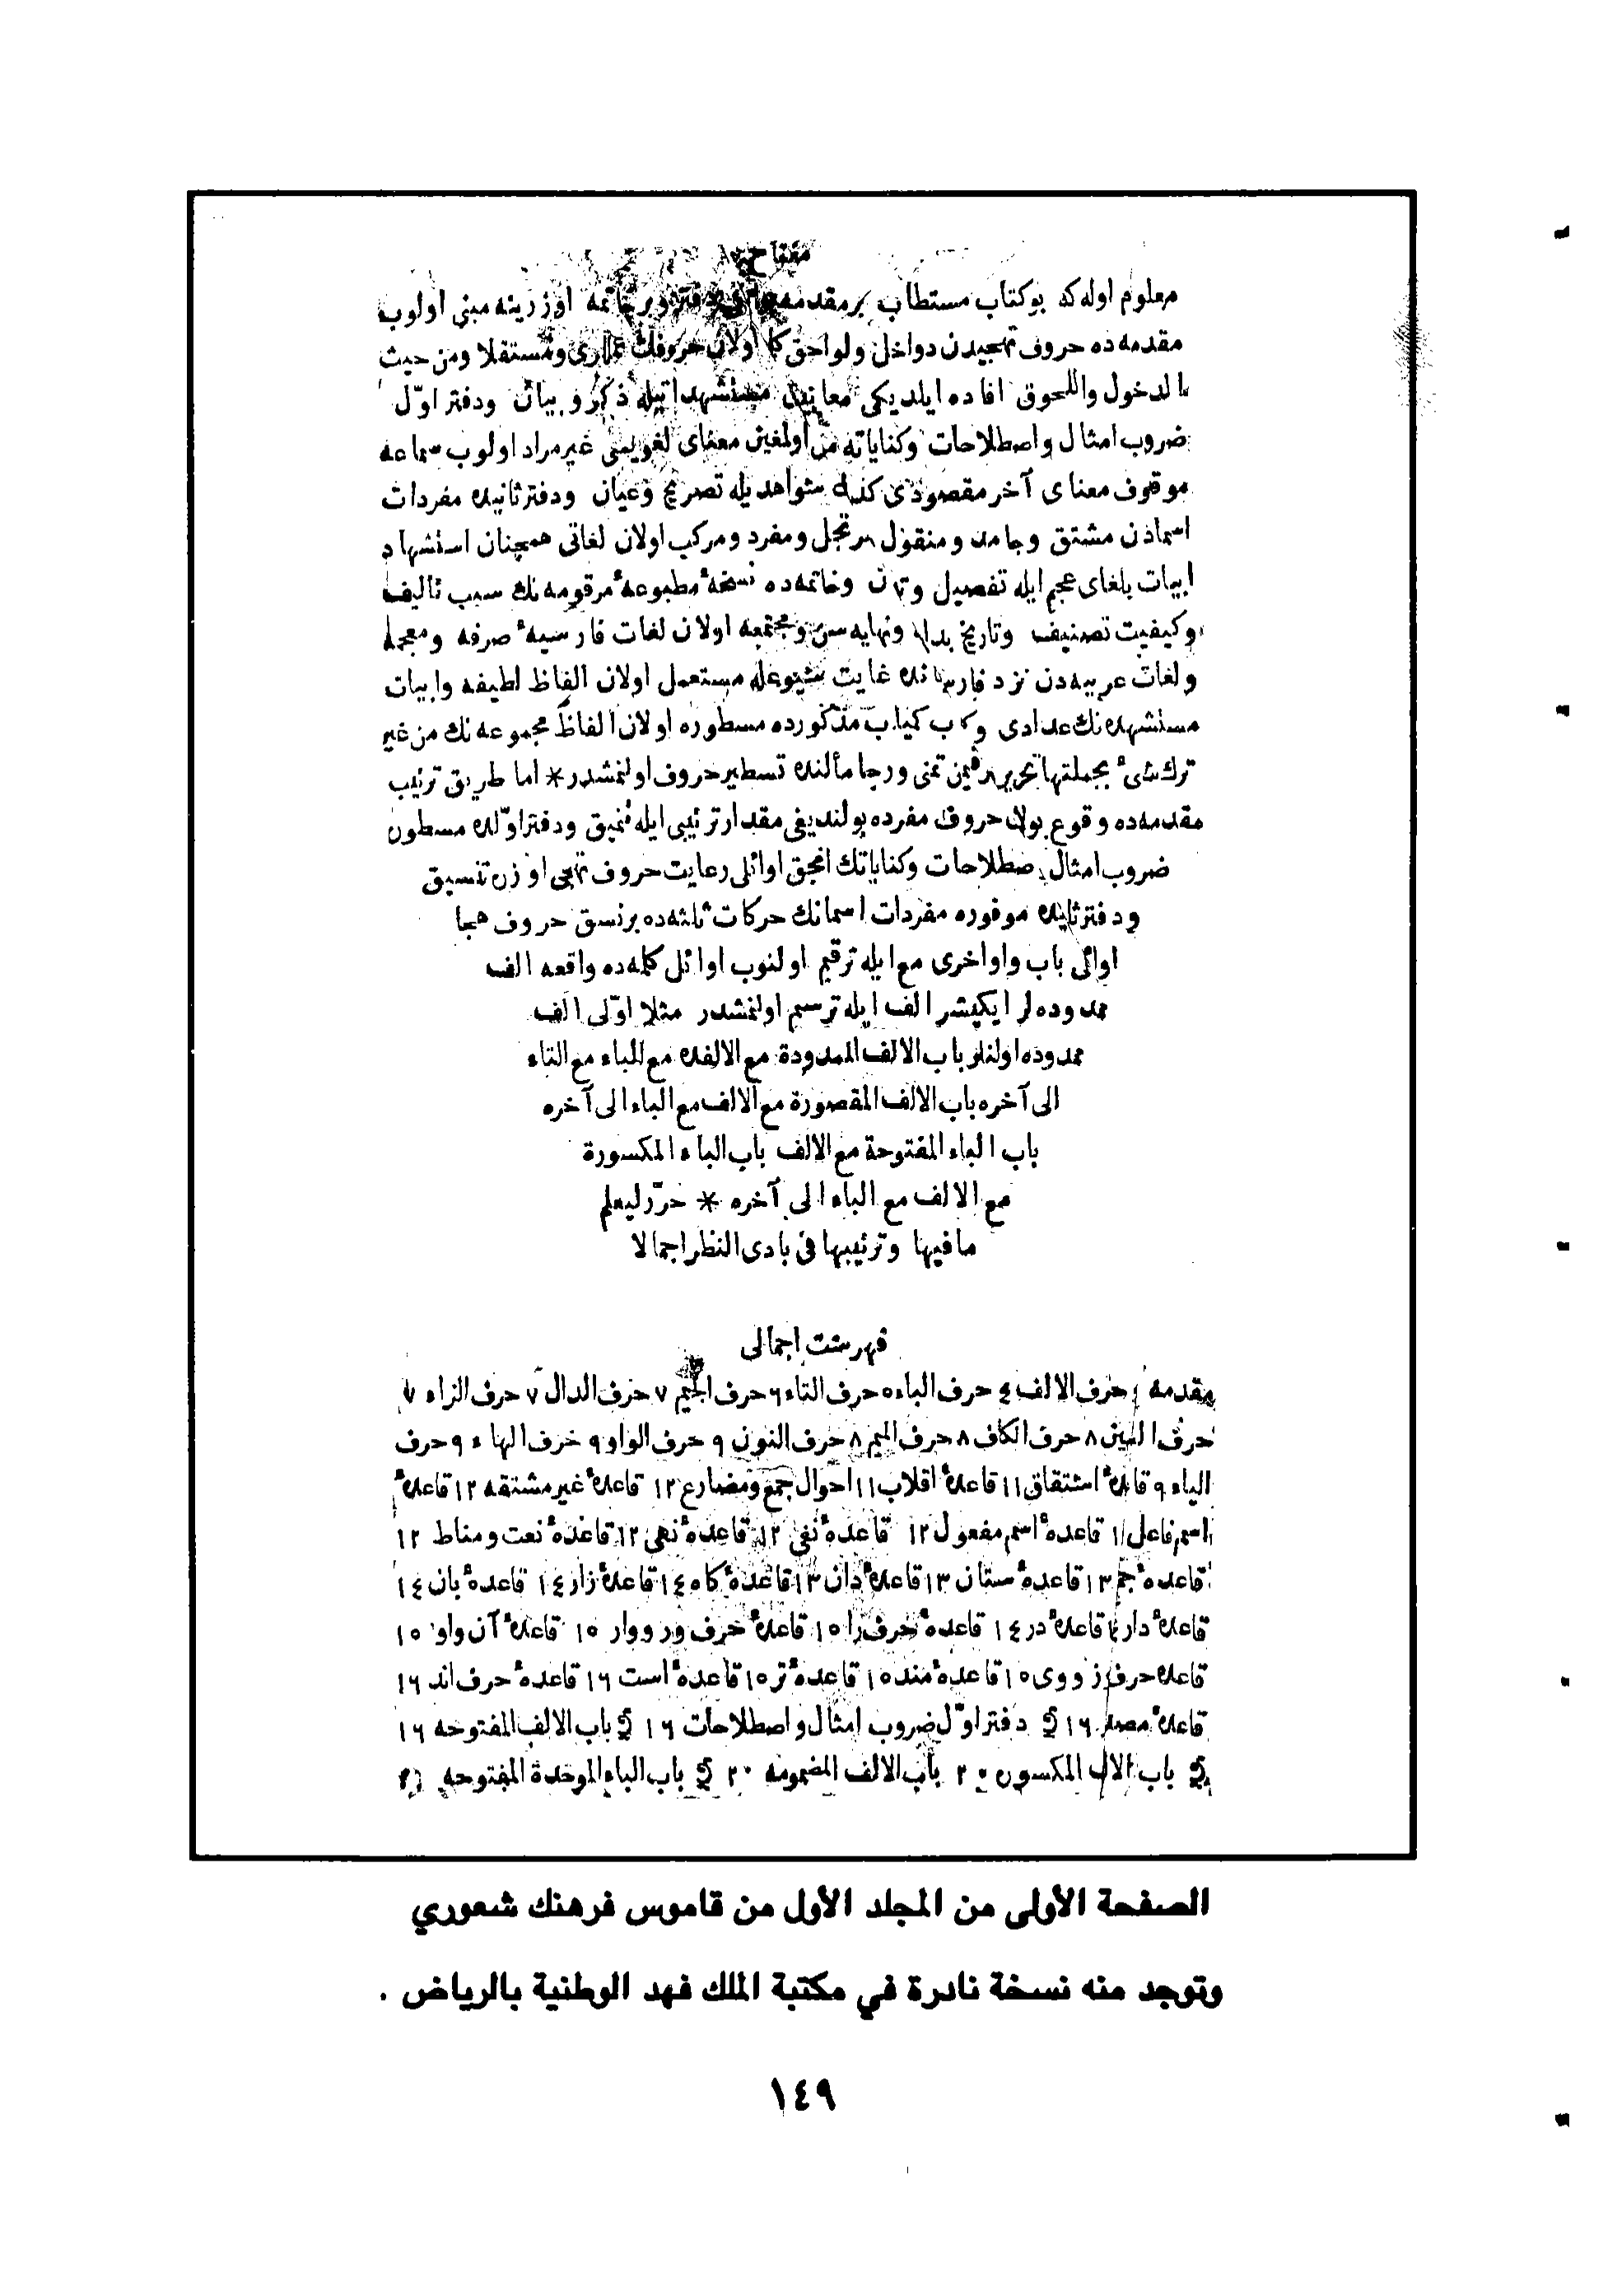 معلوم اوله كه بوكتاب مستطاب برمقدمه اوزرينه مبنى اولوب
مقدمه ده حروف تهجيدن دواخل ولواحق اولان حروفك ومستقلا ومن حيث
الدخول واللحوق افاده ايلديكى ذكر وبيان ودفتر اوّل
ضروب امثال واصطلاحات وكناياته اولمغين معناى لغويسى غيرمراد اولوب سماعه
موقوف معناى آخر مقصودى شواهديله تصريح وعيان ودفترثانيده مفردات
اسمادن مشتق وجامد ومنقول مرتجل ومفرد ومركب اولان لغاتى همچنان استشهاد
ابيات بلغاى عجم ايله تفصيل وخاتمه ده نسخهٔ مطبوعهٔ مرقومه نك سبب تاليف
وكيفيت تصنيف وتاريخ ونهايه اولان لغات فارسيهٔ صرفه ومعجمه
ولغات عربيه دن نزد غايت شيوعله مستعمل اولان الفاظ لطيفه وابيات
مستشهده نك عدادى مذكورده مسطوره اولان الفاظ مجموعه نك من غير
ترك شئ بجملتها تمنى ورجا مألنده تسطير حروف اولنمشدر * اما طريق ترتيب
مقدمه ده وقوع بولان حروف مفرده بولنديغى مقدار ترتيبى ايله تنميق ودفتر اوّلده مسطور
ضروب امثال اصطلاحات وكناياتك انجق اوائلى رعايت حروف تهجى اوزره تنسيق
ودفترثانيده موفوره مفردات اسمانك حركات ثلثه ده برنسق حروف هجا
اوائلى باب واواخرى مع ايله ترقيم اولنوب اوائل كلمه ده واقعه الف
ممدوده لر ايكيشر الف ايله ترسيم اولنمشدر مثلا اوّلى الف
ممدوده اولنلر باب الالف الممدودة مع الالفده مع الباء مع التاء
الى آخره باب الالف المقصورة مع الالف مع الباء الى آخره
باب الباء المفتوحة مع الالف باب الباء المكسورة
مع الالف مع الباء الى آخره * حرّر ليعلم
مافيها وترتيبها فى بادى النظر اجمالا
فهرست اجمالى
مقدمه حرف الالف ٤ حرف الباء ٥ حرف التاء ٦ حرف الجيم ٧ حرف الدال ٧ حرف الزاء ٧
حرف الشين ٨ حرف الكاف ٨ حرف الميم ٨ حرف النون ٩ حرف الواو ٩ حرف الهاء ٩ حرف
الياء ٩ قاعدهٔ اشتقاق ١١ قاعدهٔ اقلاب ١١ احوال جمع ومضارع ١٢ قاعدهٔ غيرمشتقه ١٢ قاعدهٔ
اسم فاعل قاعدهٔ اسم مفعول ١٢ قاعدهٔ نفى ١٢ قاعدهٔ نهى ١٢ قاعدهٔ نعت ومناط ١٢
قاعدهٔ جم ١٣ قاعدهٔ ستان ١٣ قاعدهٔ دان ١٣ قاعدهٔ كاه ١٤ قاعدهٔ زار ١٤ قاعدهٔ بان ١٤
قاعدهٔ دار قاعدهٔ در ١٤ قاعدهٔ حرف را ١٥ قاعدهٔ حرف ور ووار ١٥ قاعدهٔ آن واو ١٥
قاعده حرف ز ووى ١٥ قاعدهٔ مند ١٥ قاعدهٔ تر ١٥ قاعدهٔ است ١٦ قاعدهٔ حرف اند ١٦
قاعدهٔ مصدر ١٦ دفتر اوّل ضروب امثال واصطلاحات ١٦ باب الالف المفتوحه ١٦
باب الالف المكسوره ٢٠ باب الالف المضمومه ٢٠ باب الباء الموحدة المفتوحه
الصفحة الأولى من المجلد الأول من قاموس فرهنك شعوري
وتوجد منه نسخة نادرة في مكتبة الملك فهد الوطنية بالرياض .
١٤٩